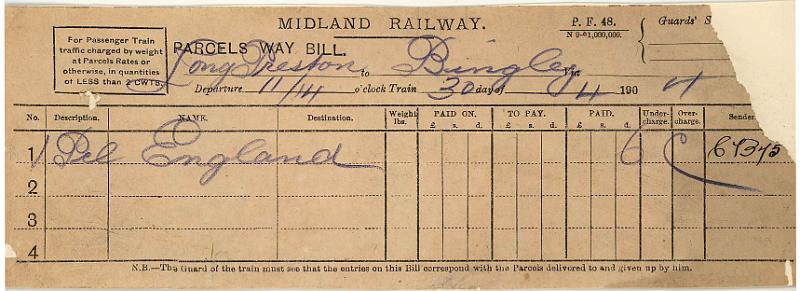 MIDLAND RAILWAY.
P. F. 48.
N 9-61,000,000.
Guards' S
For Passenger Train
traffic charged by weight
at Parcels Rates or
otherwise, in quantities
of LESS than 2 CWTS.
PARCELS WAY BILL.
Long Preston to Bingley Via
Departure 11/14 o'clock Train 30 day of 4 1904
No. Description. NAME. Destination. Weight lbs. PAID ON. £ s. d. TO PAY. £ s. d. PAID. £ s. d. Under-charge. Over-charge. Sender
1 1 Pcl England 6 64375
2
3
4
N.B.—The Guard of the train must see that the entries on this Bill correspond with the Parcels delivered to and given up by him.